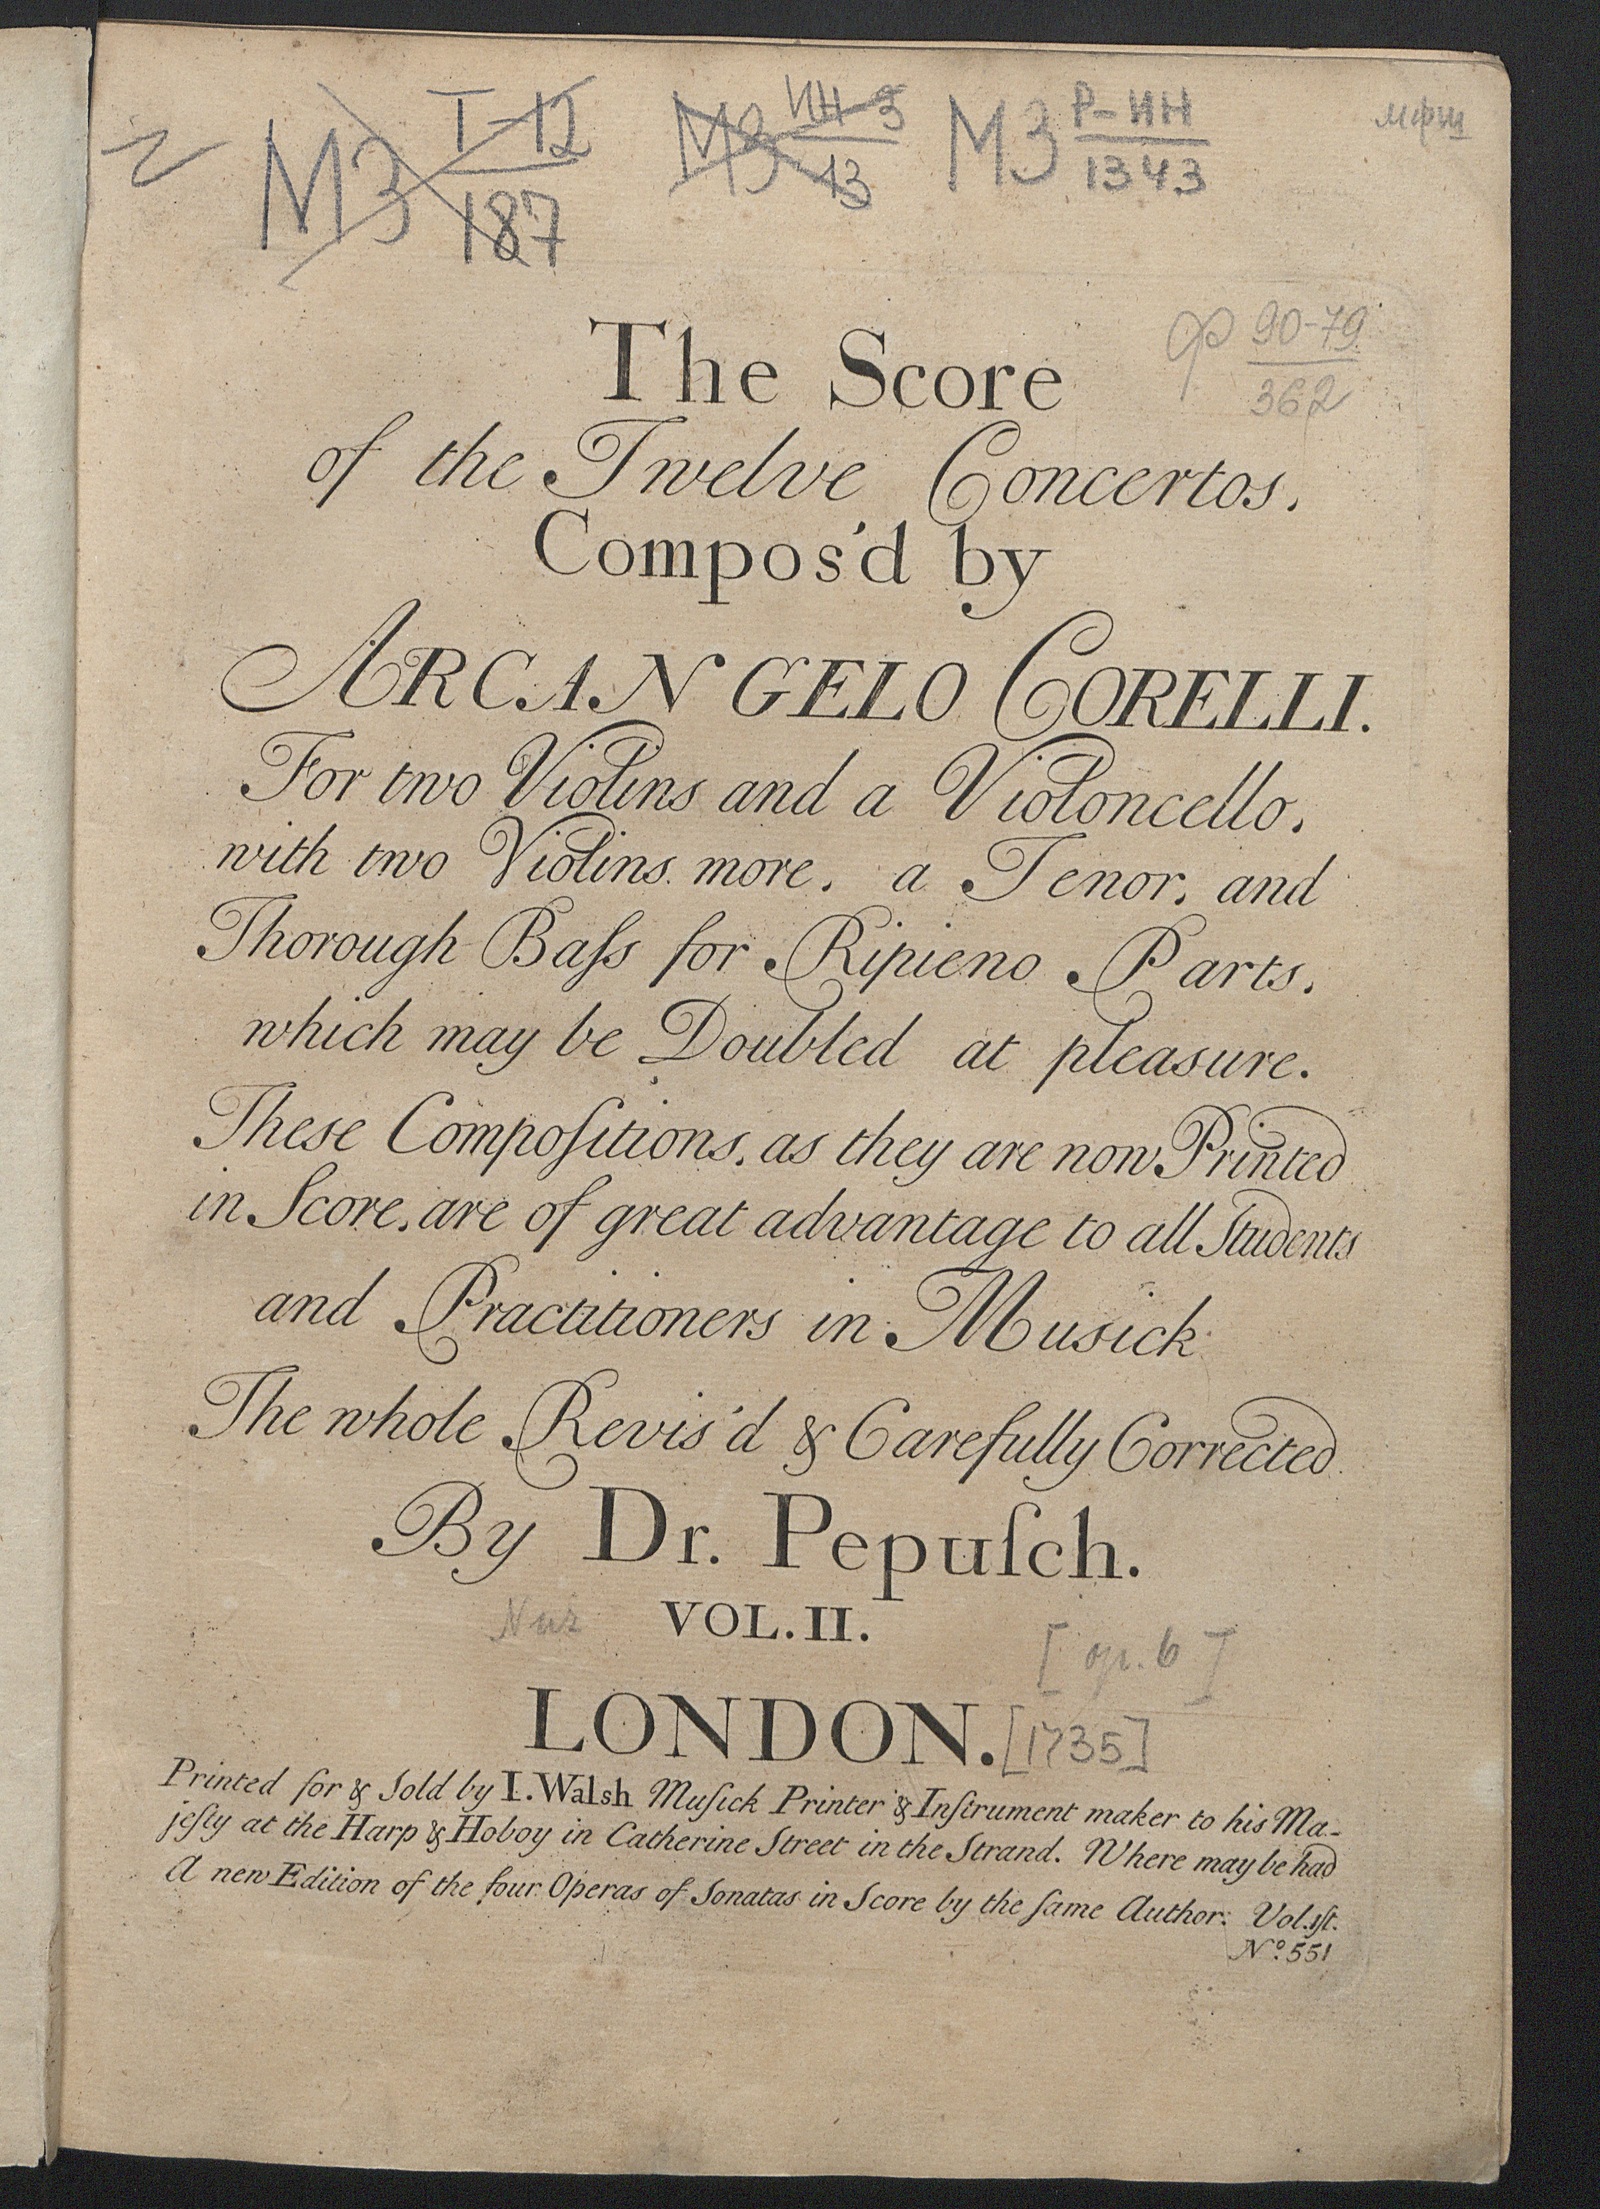 МЗ Т-12 / 187 МЗ ИН-3 / 13 МЗ Р-ИН / 1343 мфш
ф 90-79 / 362
The Score
of the Twelve Concertos,
Compos'd by
ARCANGELO CORELLI.
For two Violins and a Violoncello,
with two Violins more, a Tenor, and
Thorough Baſs for Ripieno Parts,
which may be Doubled at pleasure.
These Compoſitions, as they are now Printed
in Score, are of great advantage to all Students
and Practitioners in Musick
The whole Revis'd & Carefully Corrected
By Dr. Pepuſch.
VOL. II.
[op. 6]
LONDON. [1735]
Printed for & Sold by I. Walsh Muſick Printer & Inſtrument maker to his Ma-
jeſty at the Harp & Hoboy in Catherine Street in the Strand. Where may be had
A new Edition of the four Operas of Sonatas in Score by the ſame Author: Vol. 1ſt.
Nº. 551